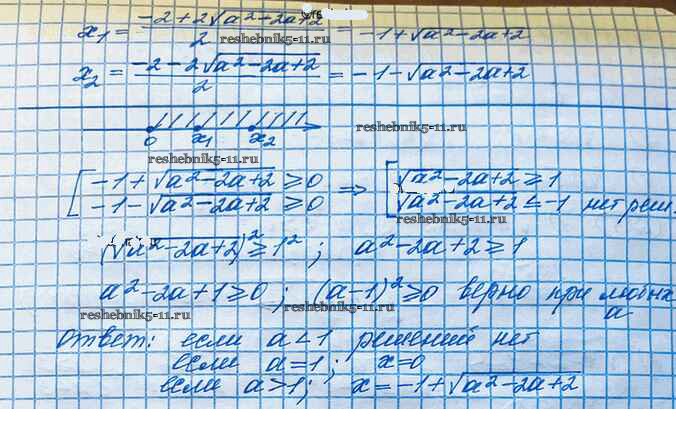 x₁ = (-2+2√(a²-2a+2))/2 = -1+√(a²-2a+2)
reshebnik5-11.ru
x₂ = (-2-2√(a²-2a+2))/2 = -1-√(a²-2a+2)
0 x₁ x₂
reshebnik5-11.ru
reshebnik5-11.ru
[ -1+√(a²-2a+2) ≥ 0 ⇒ [ √(a²-2a+2) ≥ 1
-1-√(a²-2a+2) ≥ 0 √(a²-2a+2) ≤ -1 нет реш.
reshebnik5-11.ru
(√(a²-2a+2))² ≥ 1² ; a²-2a+2 ≥ 1
a²-2a+1 ≥ 0 ; (a-1)² ≥ 0 верно при любых a
reshebnik5-11.ru reshebnik5-11.ru
Ответ: если a<1 решений нет
если a=1; x=0
если a>1; x=-1+√(a²-2a+2)